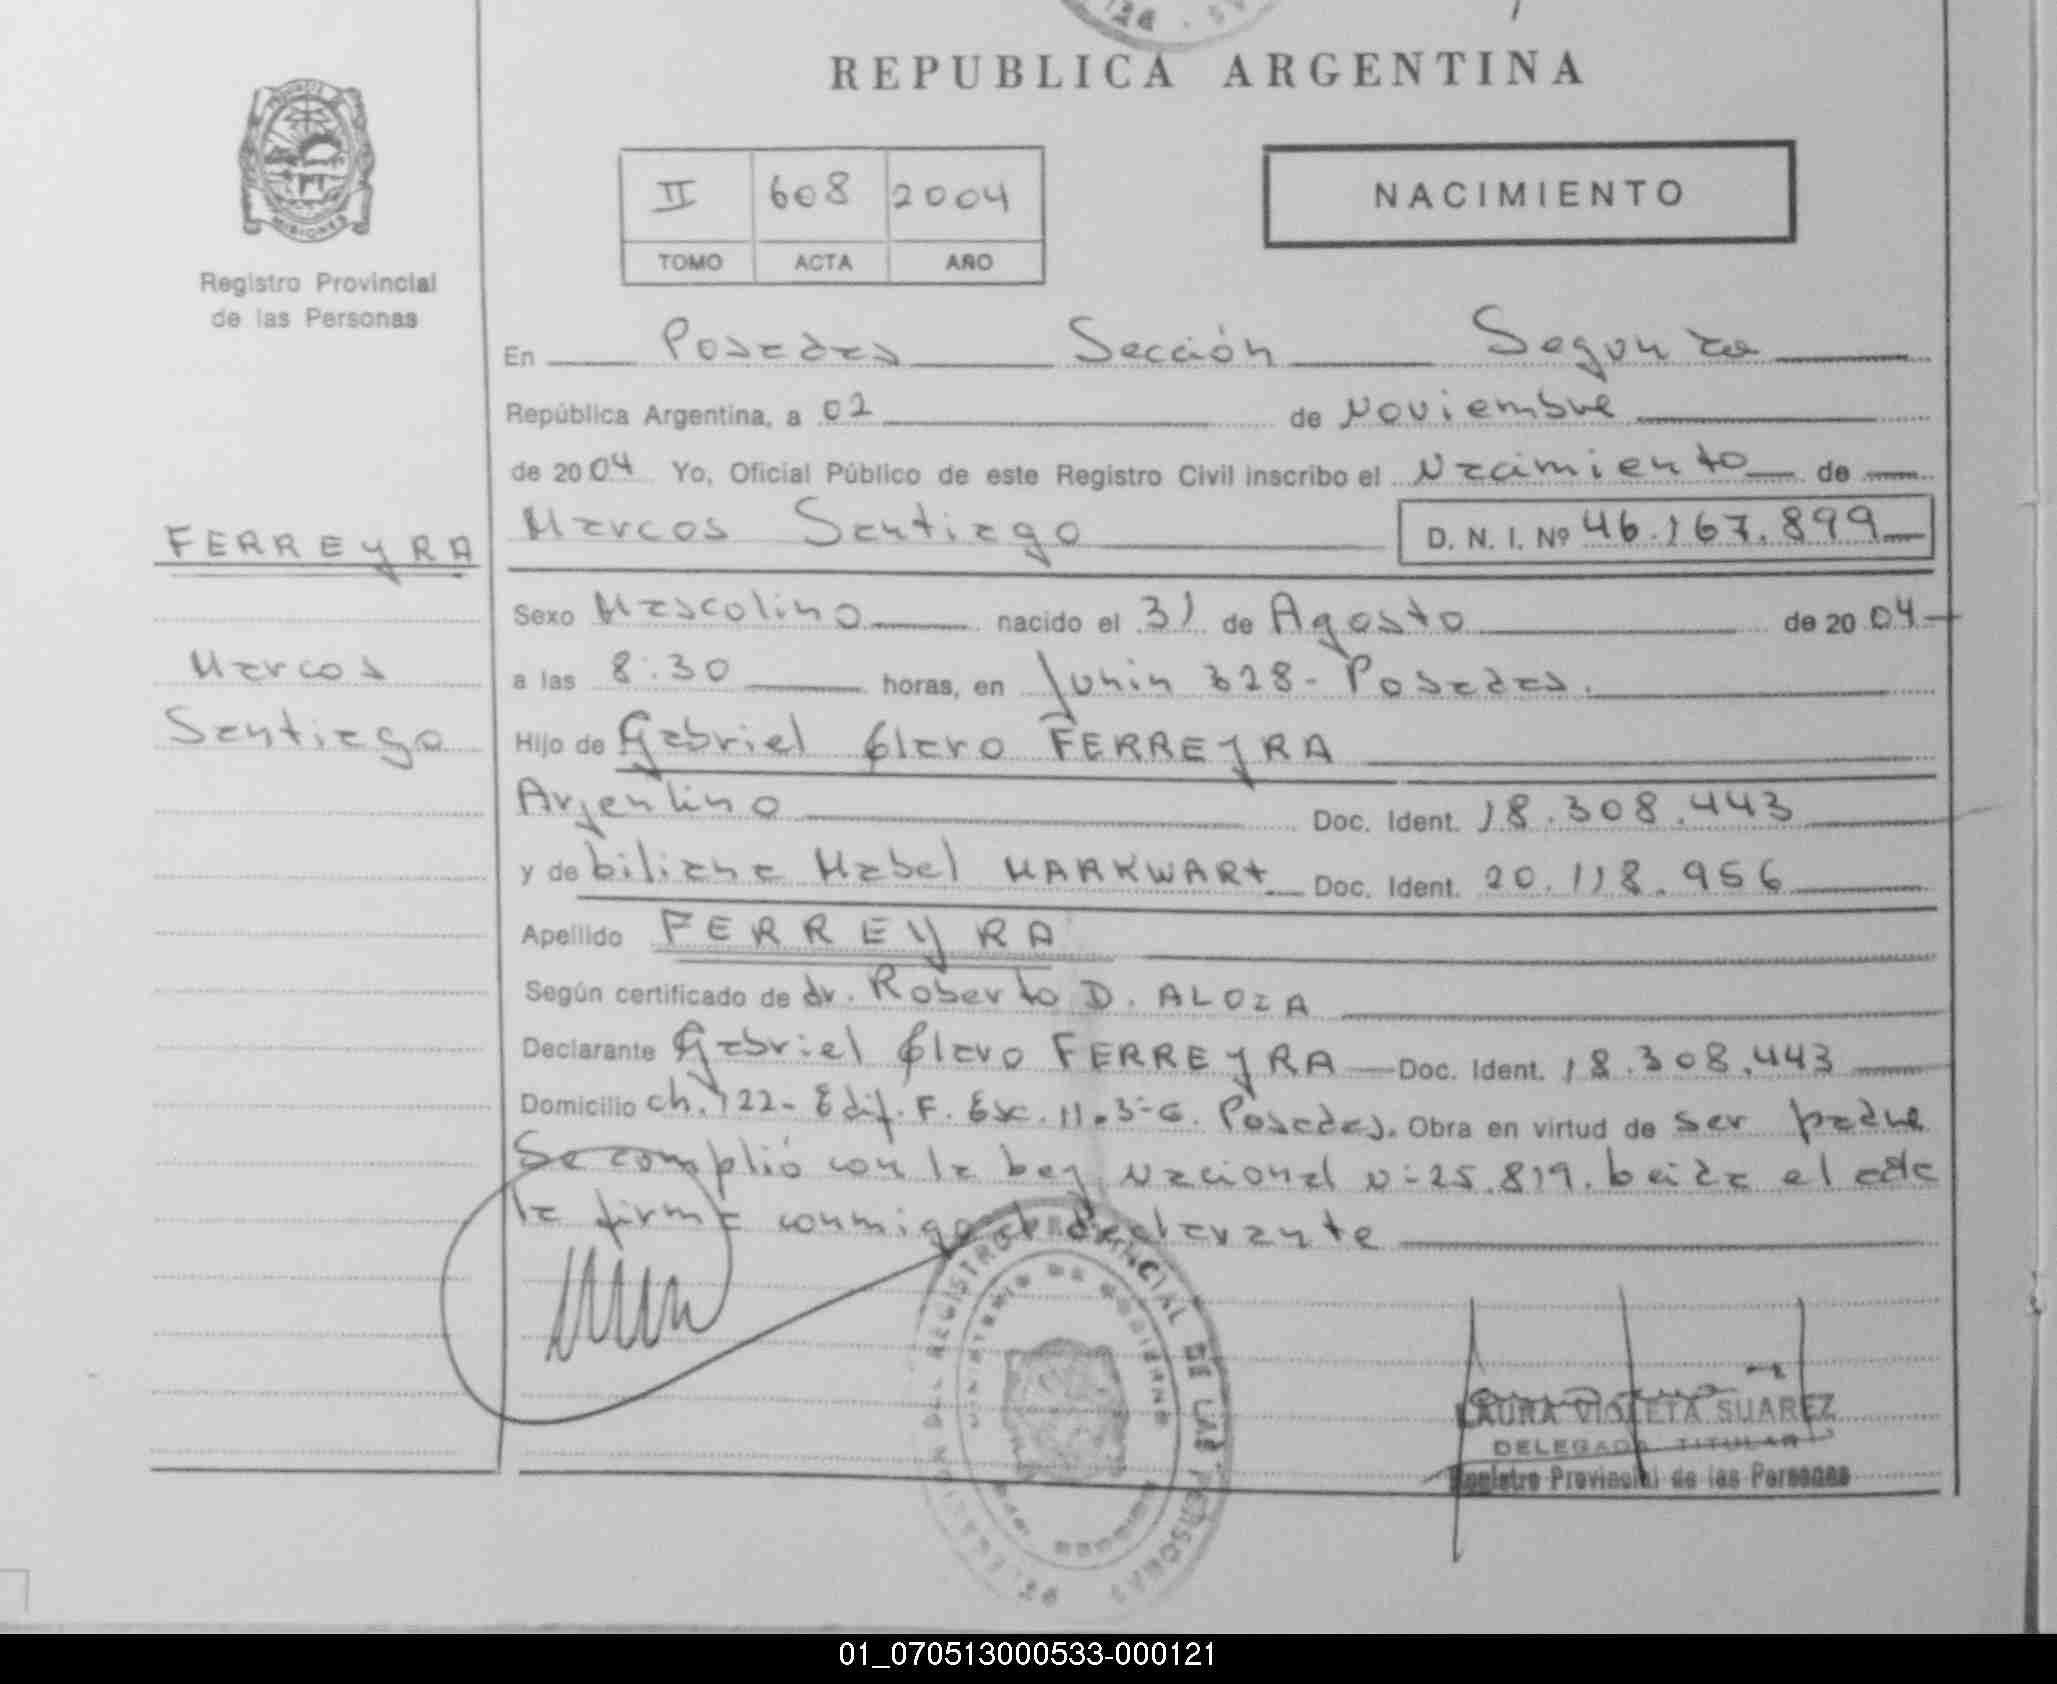 REPUBLICA ARGENTINA
MISIONES
Registro Provincial
de las Personas
II 608 2004
TOMO ACTA AÑO
NACIMIENTO
En Posadas Sección Segunda
República Argentina, a 02 de Noviembre
de 2004 Yo, Oficial Público de este Registro Civil inscribo el Nacimiento de
FERREYRA
Marcos Santiago
Marcos Santiago D. N. I. Nº 46.167.899
Sexo Masculino nacido el 31 de Agosto de 2004
a las 8:30 horas, en Junin 328- Posadas.
Hijo de Gabriel Claro FERREYRA
Argentino Doc. Ident. 18.308.443
y de Liliana Mabel MARKWART Doc. Ident. 20.118.956
Apellido FERREYRA
Según certificado de dr. Roberto D. ALOZA
Declarante Gabriel Claro FERREYRA Doc. Ident. 18.308.443
Domicilio ch. 122- Edif. F. Esc. 11. 3-G. Posadas. Obra en virtud de ser padre
Se complió con la Ley Nacional N= 25.819. Leida el acta
la firma conmigo el declarante
REGISTRO PROVINCIAL DE LAS PERSONAS
MINISTERIO DE GOBIERNO
LAURA VIOLETA SUAREZ
DELEGADA TITULAR
Registro Provincial de las Personas
01_070513000533-000121